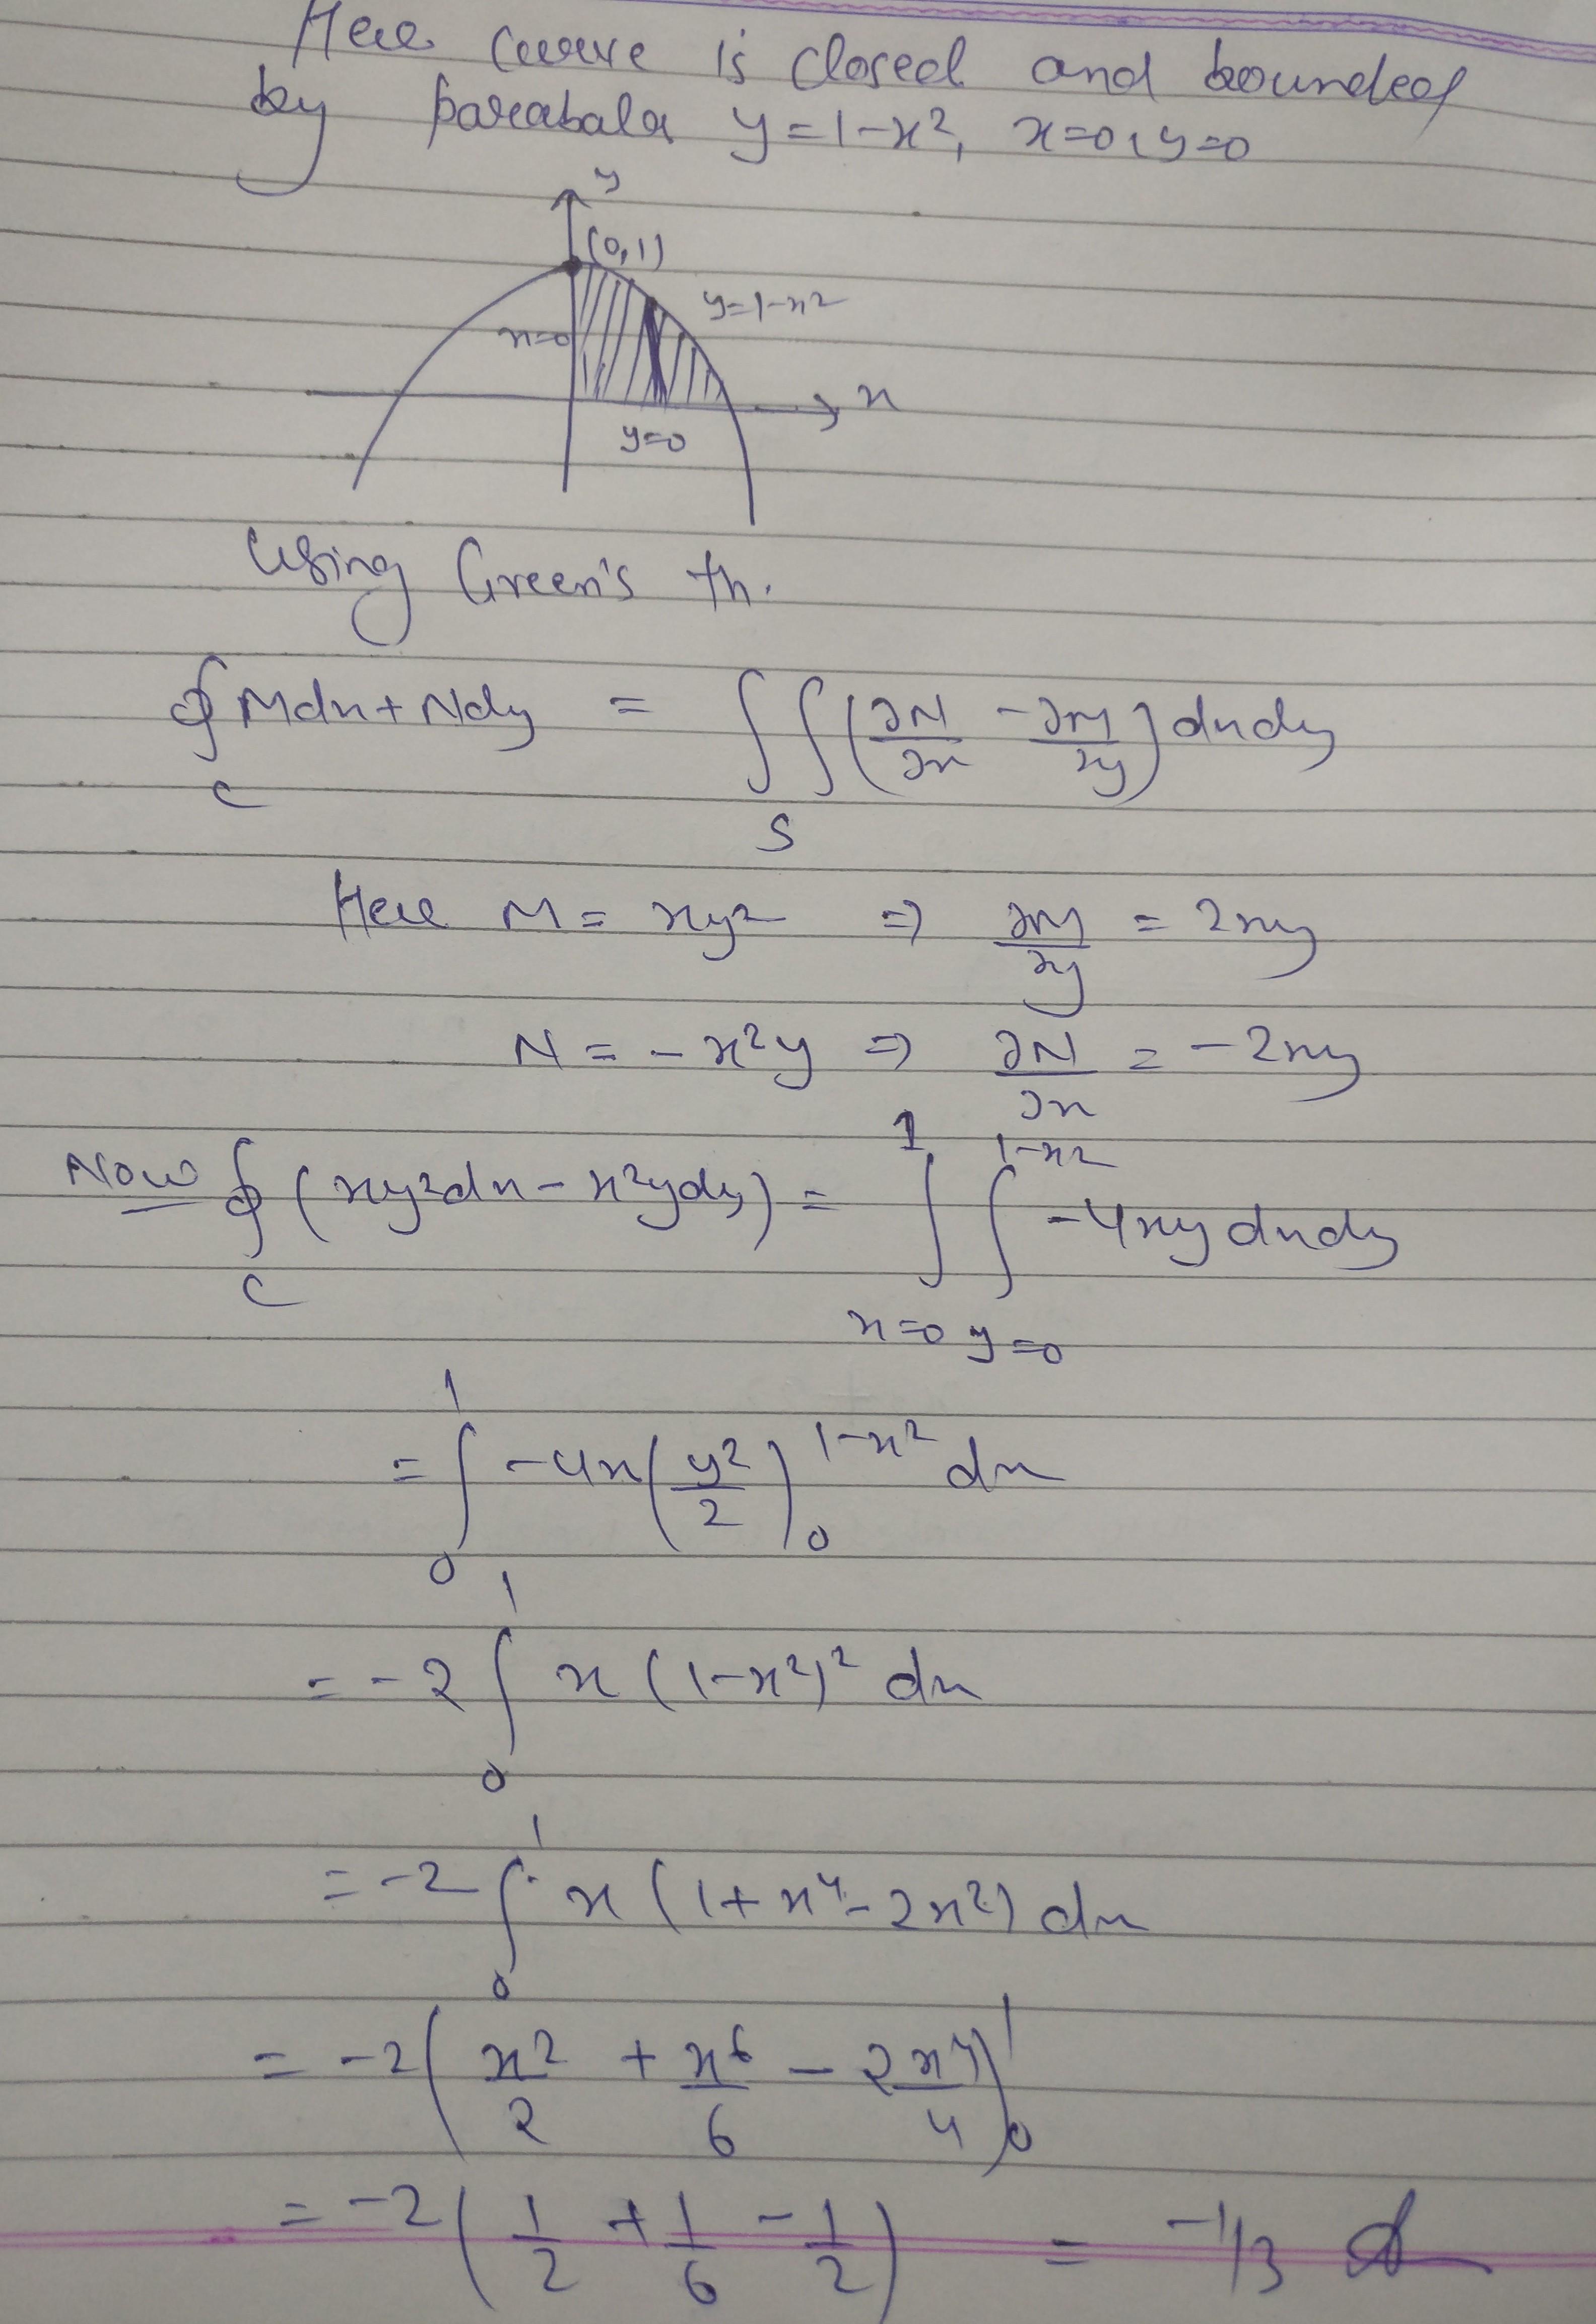 Here curve is closed and bounded
by parabala y=1-x², x=0, y=0
y
(0,1)
y=1-x²
x=0
x
y=0
Using Green's th.
∮_C Mdx+Ndy = ∫∫_S (∂N/∂x - ∂M/∂y) dxdy
Here M = xy² ⇒ ∂M/∂y = 2xy
N = -x²y ⇒ ∂N/∂x = -2xy
Now ∮_C (xy²dx - x²ydy) = ∫_{x=0}^{1} ∫_{y=0}^{1-x²} -4xy dxdy
= ∫_0^1 -4x (y²/2)_0^{1-x²} dx
= -2 ∫_0^1 x (1-x²)² dx
= -2 ∫_0^1 x (1+x⁴-2x²) dx
= -2 (x²/2 + x⁶/6 - 2x⁴/4)_0^1
= -2 (1/2 + 1/6 - 1/2) = -1/3